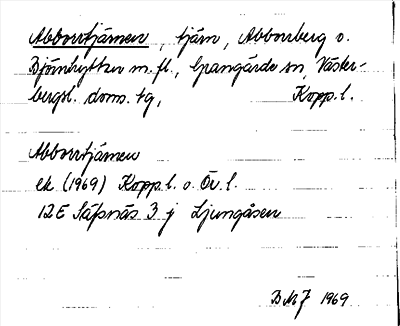 Abborrtjärnen, tjärn, Abborrberg o.
Björnhyttan m.fl., Grangärde sn, Väster-
bergsl. doms. tg, Kopp.l.
Abborrtjärnen
ek (1969) Kopp.l. o. Ör.l.
12E Säfsnäs 3 j Ljungåsen
BMJ 1969